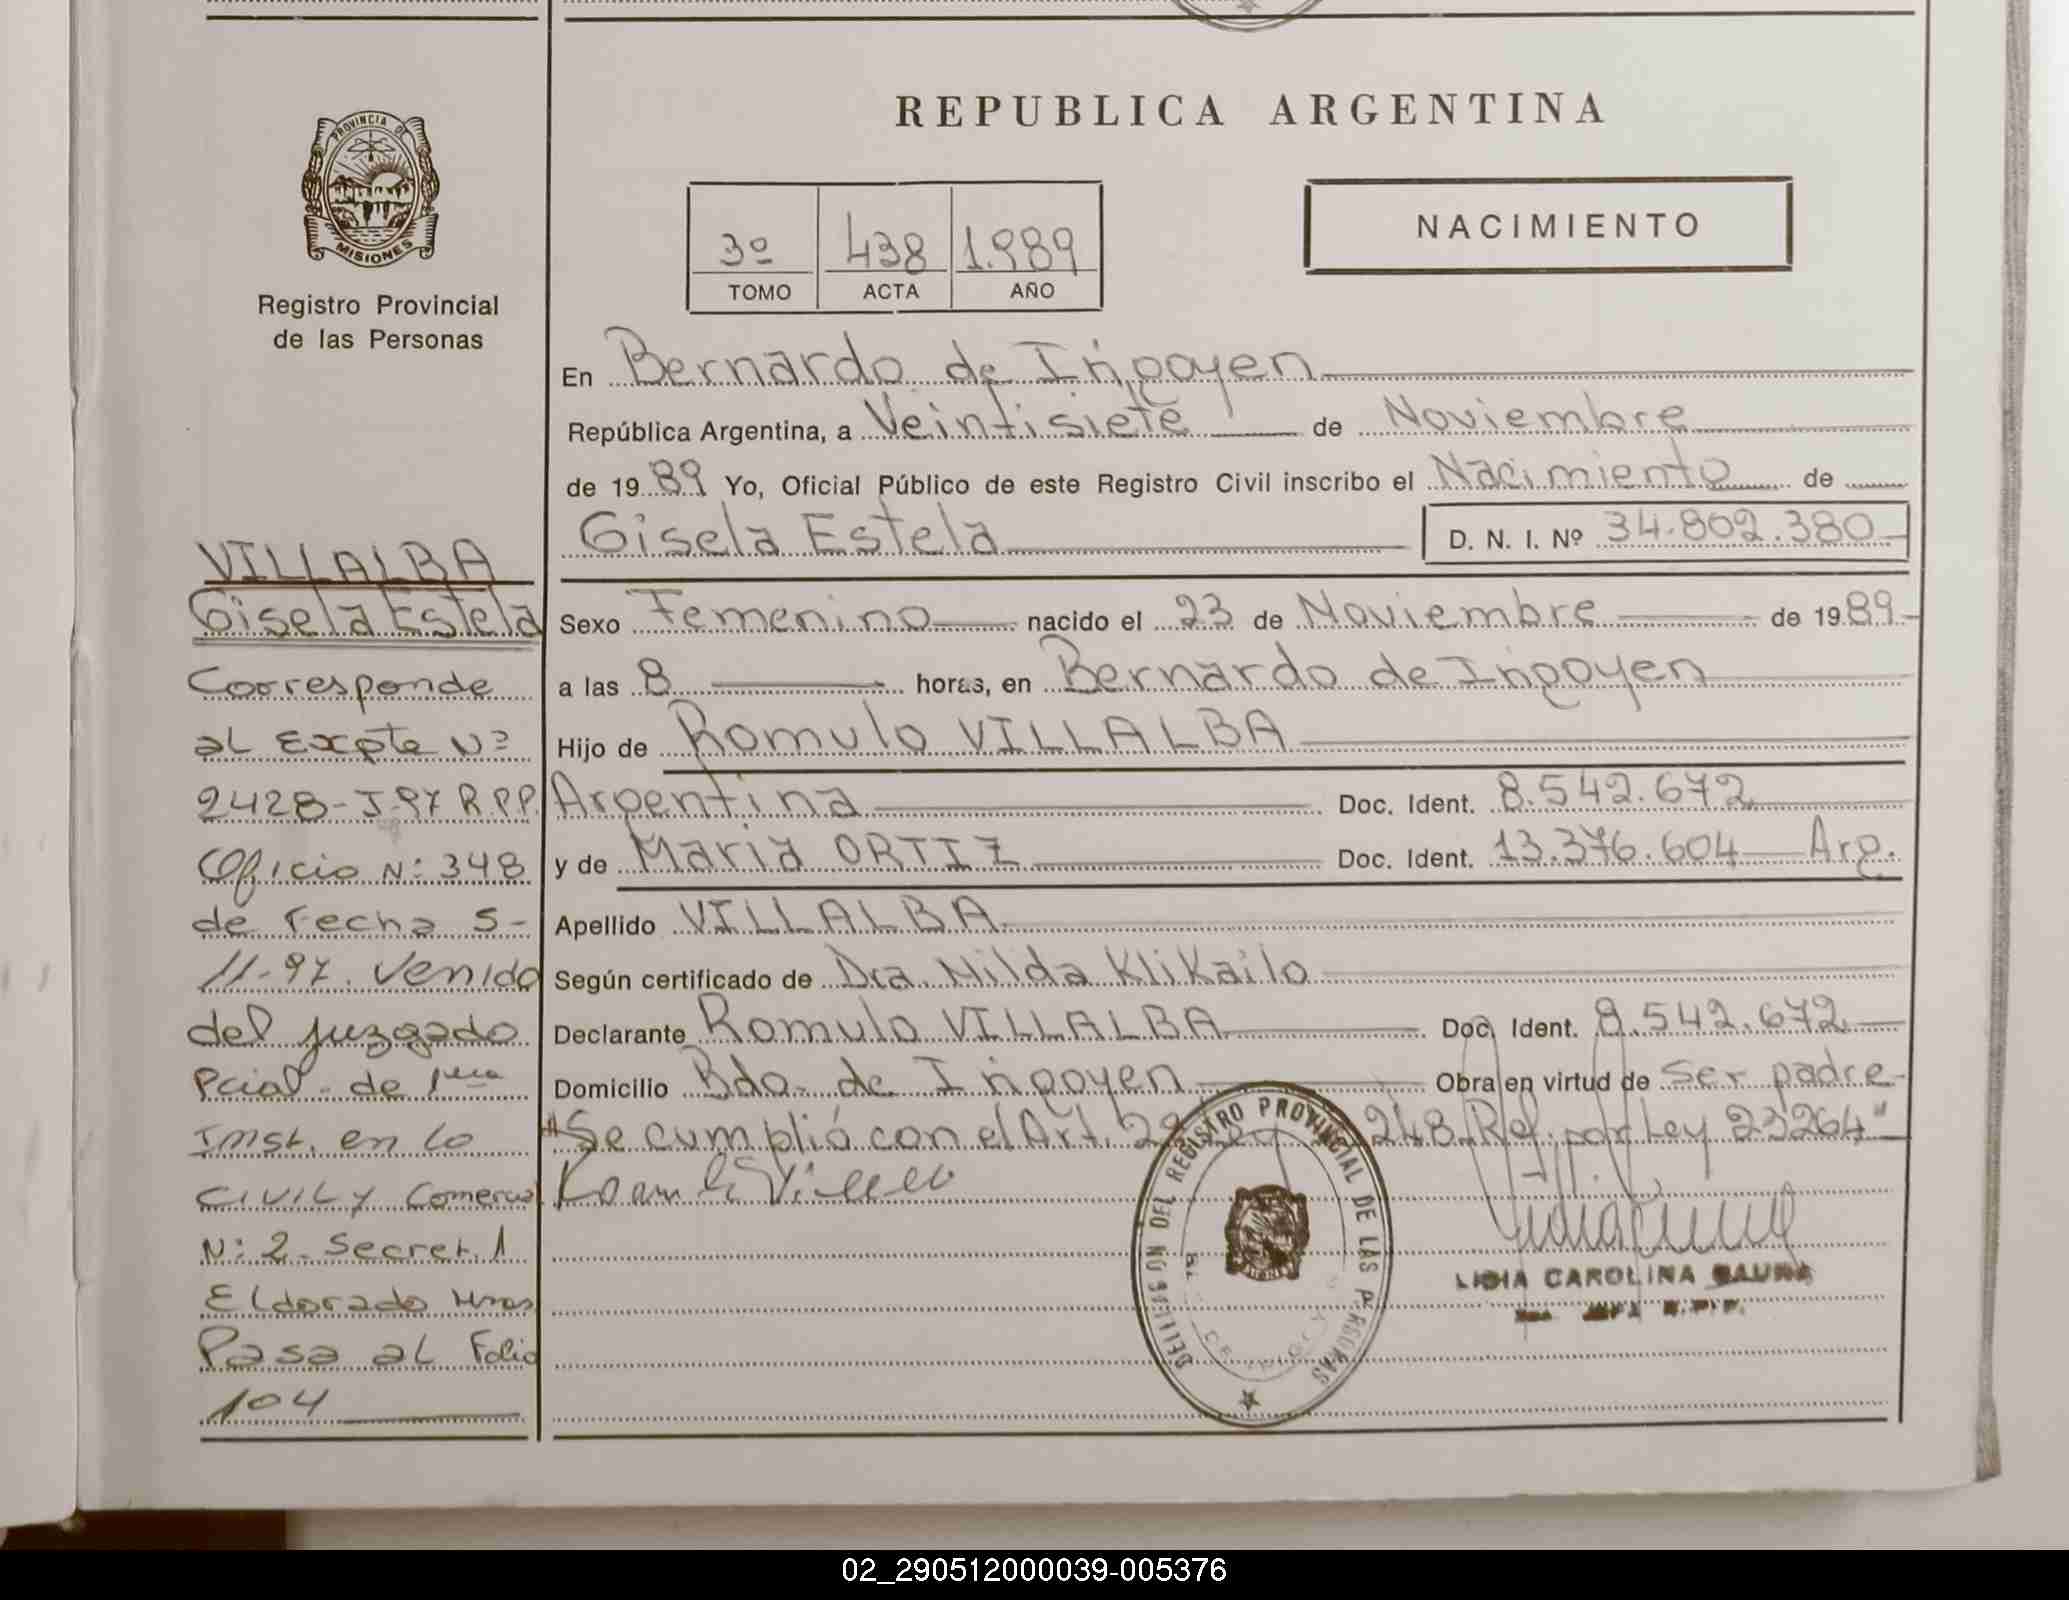 REPUBLICA ARGENTINA
PROVINCIA DE
MISIONES
Registro Provincial
de las Personas
3º 438 1.989
TOMO ACTA AÑO
NACIMIENTO
En Bernardo de Irigoyen
República Argentina, a Veintisiete de Noviembre
de 1989 Yo, Oficial Público de este Registro Civil inscribo el Nacimiento de
Gisela Estela D. N. I. Nº 34.802.380
Sexo Femenino nacido el 23 de Noviembre de 1989
a las 8 horas, en Bernardo de Irigoyen
Hijo de Romulo VILLALBA
Argentina Doc. Ident. 8.542.672
y de Maria ORTIZ Doc. Ident. 13.376.604 Arg.
Apellido VILLALBA
Según certificado de Dra. Nilda Klikailo
Declarante Romulo VILLALBA Doc. Ident. 8.542.672
Domicilio Bdo. de Irigoyen Obra en virtud de ser padre
"Se cumplió con el Art. 248 Ref. por Ley 23264"
VILLALBA
Gisela Estela
Corresponde
al Expte Nº
2428-J-97 R.P.P.
Oficio Nº 348
de Fecha 5-
11-97. Venido
del juzgado
Pcial. de 1era
Inst. en lo
CIVIL y Comercial
Nº 2. Secret. 1
Eldorado Mnes
Pasa al Folio
104
DEL REGISTRO PROVINCIAL DE LAS PERSONAS
LIDIA CAROLINA
02_290512000039-005376